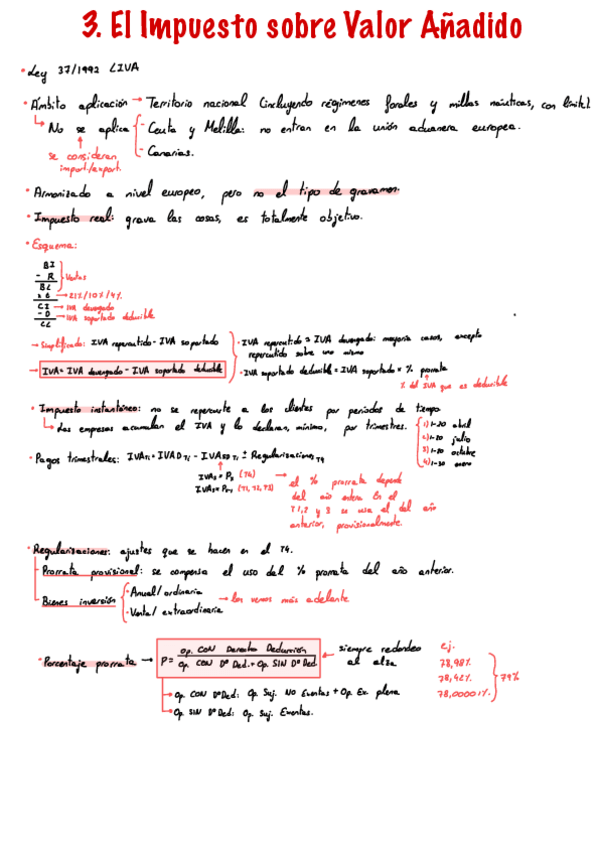 3. El Impuesto sobre Valor Añadido
• Ley 37/1992 LIVA
• Ámbito aplicación → Territorio nacional (incluyendo régimenes forales y millas náuticas, con límite).
↳ No se aplica - Ceuta y Melilla: no entran en la unión aduanera europea.
- Canarias.
se consideran
import./export.
• Armonizado a nivel europeo, pero no el tipo de gravamen.
• Impuesto real: grava las cosas, es totalmente objetivo.
• Esquema:
BI
- R
Ventas
BL
x t → 21%/10%/4%
CI → IVA devengado
- D → IVA soportado deducible
CL
→ Simplificado: IVA repercutido - IVA soportado
→ IVA = IVA devengado - IVA soportado deducible
• IVA repercutido = IVA devengado: mayoría casos, excepto
repercutido sobre uno mismo
• IVA soportado deducible = IVA soportado × % prorrata
% del IVA que es deducible
• Impuesto instantáneo: no se repercute a los clientes por periodos de tiempo
↳ Las empresas acumulan el IVA y lo declaran, mínimo, por trimestres.
1) 1-20 abril
2) 1-20 julio
3) 1-20 octubre
4) 1-30 enero
• Pagos trimestrales:
± Regularizaciones T4
(T4)
(T1, T2, T3)
→ el % prorrata depende
del año entero. En el
T1, 2 y 3 se usa el del año
anterior, provisionalmente.
• Regularizaciones: ajustes que se hacen en el T4.
Prorrata provisional: se compensa el uso del % prorrata del año anterior.
Bienes inversión
• Anual/ordinaria
• Venta/extraordinaria
→ los vemos más adelante
• Porcentaje prorrata → P = Op. CON Derecho Deducción / Op. CON Dº Ded. + Op. SIN Dº Ded
← siempre redondeo
al alza
ej.
78,98%
78,42%
78,00001%
79%
→ Op. CON Dº Ded: Op. Suj. No Exentas + Op. Ex. plena
→ Op. SIN Dº Ded: Op. Suj. Exentas.